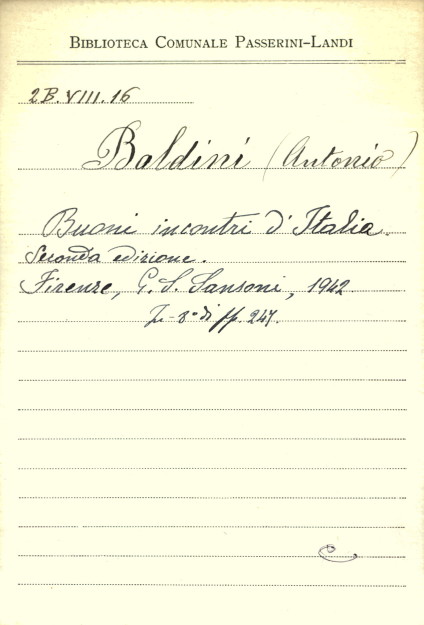 BIBLIOTECA COMUNALE PASSERINI-LANDI
2B.VIII.16
Baldini (Antonio)
Buoni incontri d'Italia.
Seconda edizione.
Firenze, G. S. Sansoni, 1942.
In-8º di pp. 247.